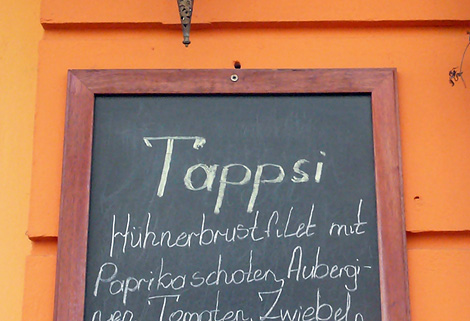 Tappsi
Hühnerbrustfilet mit
Paprikaschoten, Aubergi-
nen, Tomaten, Zwiebeln